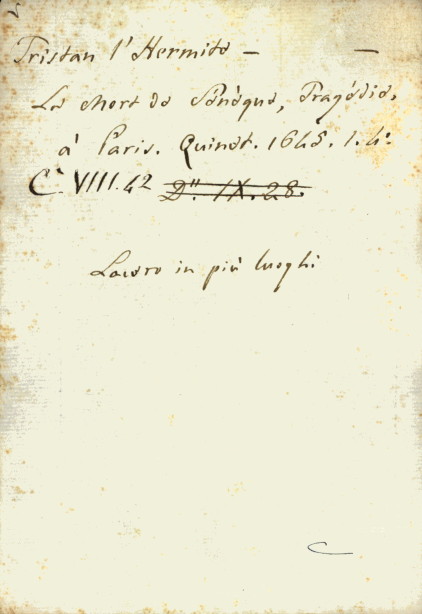 Tristan l'Hermite — —
La Mort de Sénèque, Tragédie,
à Paris. Quinet. 1645. 1. 4°
C. VIII. 42 D. IX. 28.
Lacero in più luoghi